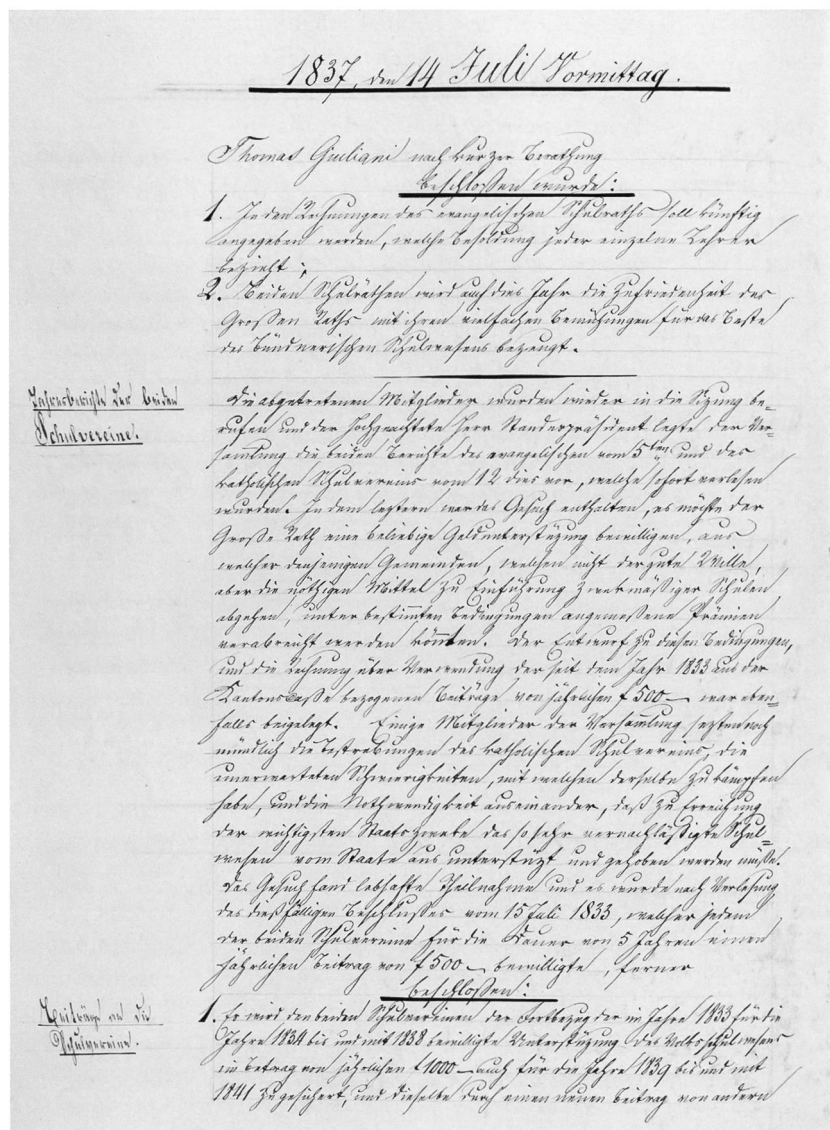 1837, den 14 Juli Vormittag.
Thomas Giuliani nach kurzer Berathung
beschlossen wurde:
1. In den Rechnungen des evangelischen Schulraths soll künftig
angegeben werden, welche Besoldung jeder einzelne Lehrer
bezieht;
2. Beiden Schulräthen wird auch dies Jahr die Zufriedenheit des
Großen Raths mit ihren vielfachen Bemühungen für das Beste
des Bündnerischen Schulwesens bezeugt.
Jahresberichte der beiden
Schulvereine.
Die abgetretenen Mitglieder wurden wieder in die Sizung be=
rufen und der hochgeachtete Herr Standespräsident legte der Ver=
samlung die beiden Berichte des evangelischen vom 5ten und des
katholischen Schulvereins vom 12 dies vor, welche sofort verlesen
wurden. In dem leztern war das Gesuch enthalten, es möchte der
Große Rath eine beliebige Geldunterstüzung bewilligen, aus
welcher denjenigen Gemeinden, welchen nicht der gute Wille,
aber die nöthigen Mittel zu Einführung zwekmäßiger Schulen
abgehen, unter bestimten Bedingungen angemessene Prämien
verabreicht werden könnten. Der Entwurf zu diesen Bedingungen,
und die Rechnung über Verwendung der seit dem Jahr 1833 aus der
Kantonskasse bezogenen Beiträge von jährlichen f 500 – war eben=
falls beigelegt. Einige Mitglieder der Versamlung sezten noch
mündlich die Bestrebungen des katholischen Schulvereins, die
unerwarteten Schwierigkeiten, mit welchen derselbe zu kämpfen
habe, und die Nothwendigkeit auseinander, daß zu Erreichung
der wichtigsten Staatszweke das so sehr vernachläßigte Schul=
wesen vom Staate aus unterstüzt und gehoben werden müße.
Das Gesuch fand lebhafte Theilnahme und es wurde nach Verlesung
des dießfälligen Beschlusses vom 15 Juli 1833, welcher jedem
der beiden Schulvereine für die Dauer von 5 Jahren einen
jährlichen Beitrag von f 500 – bewilligte, ferner
beschlossen:
Beiträge an die
Schulvereine.
1. Es wird den beiden Schulvereinen der Fortbezug der im Jahre 1833 für die
Jahre 1834 bis und mit 1838 bewilligte Unterstüzung des Volksschulwesens
im Betrag von jährlichen f 1000 – auch für die Jahre 1839 bis und mit
1841 zugesichert, und dieselbe durch einen neuen Beitrag von andern